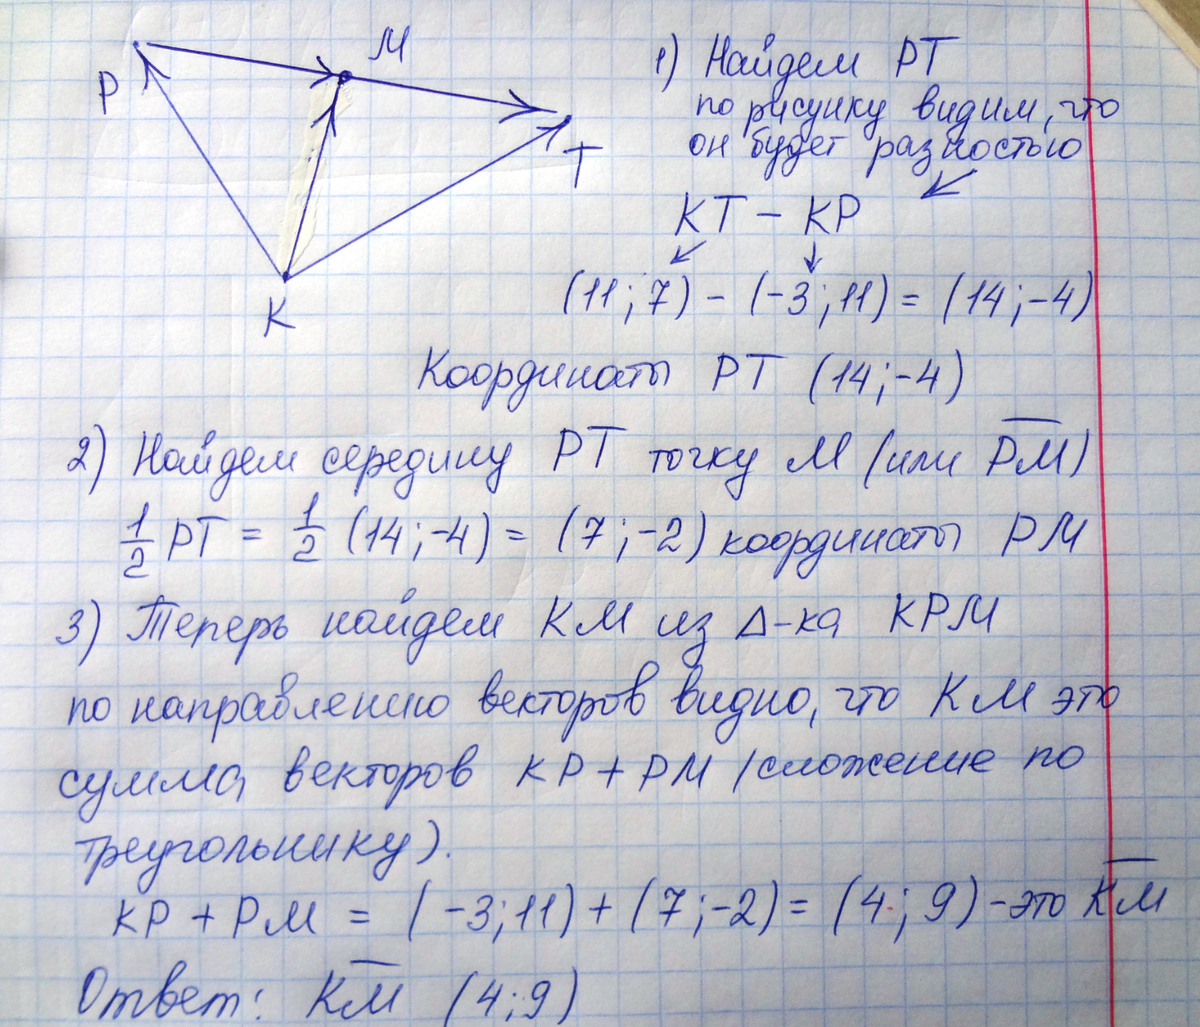 P
M
T
K
1) Найдем PT
по рисунку видим, что
он будет разностью
KT - KP
(11; 7) - (-3; 11) = (14; -4)
Координаты PT (14; -4)
2) Найдем середину PT точку M (или PM)
1/2 PT = 1/2 (14; -4) = (7; -2) координаты PM
3) Теперь найдем KM из Δ-ка KPM
по направлению векторов видно, что KM это
сумма векторов KP + PM (сложение по
треугольнику).
KP + PM = (-3; 11) + (7; -2) = (4; 9) - это KM
Ответ: KM (4; 9)